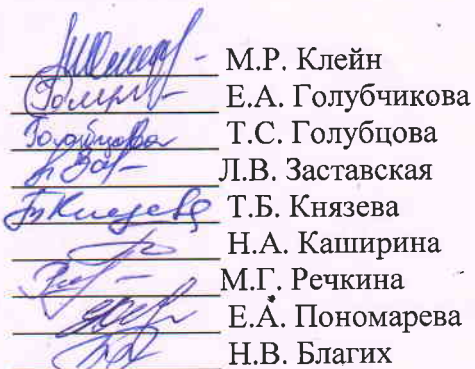 М.Р. Клейн
Е.А. Голубчикова
Голубцова Т.С. Голубцова
Л.В. Заставская
Т.Б. Князева
Н.А. Каширина
М.Г. Речкина
Е.А. Пономарева
Н.В. Благих